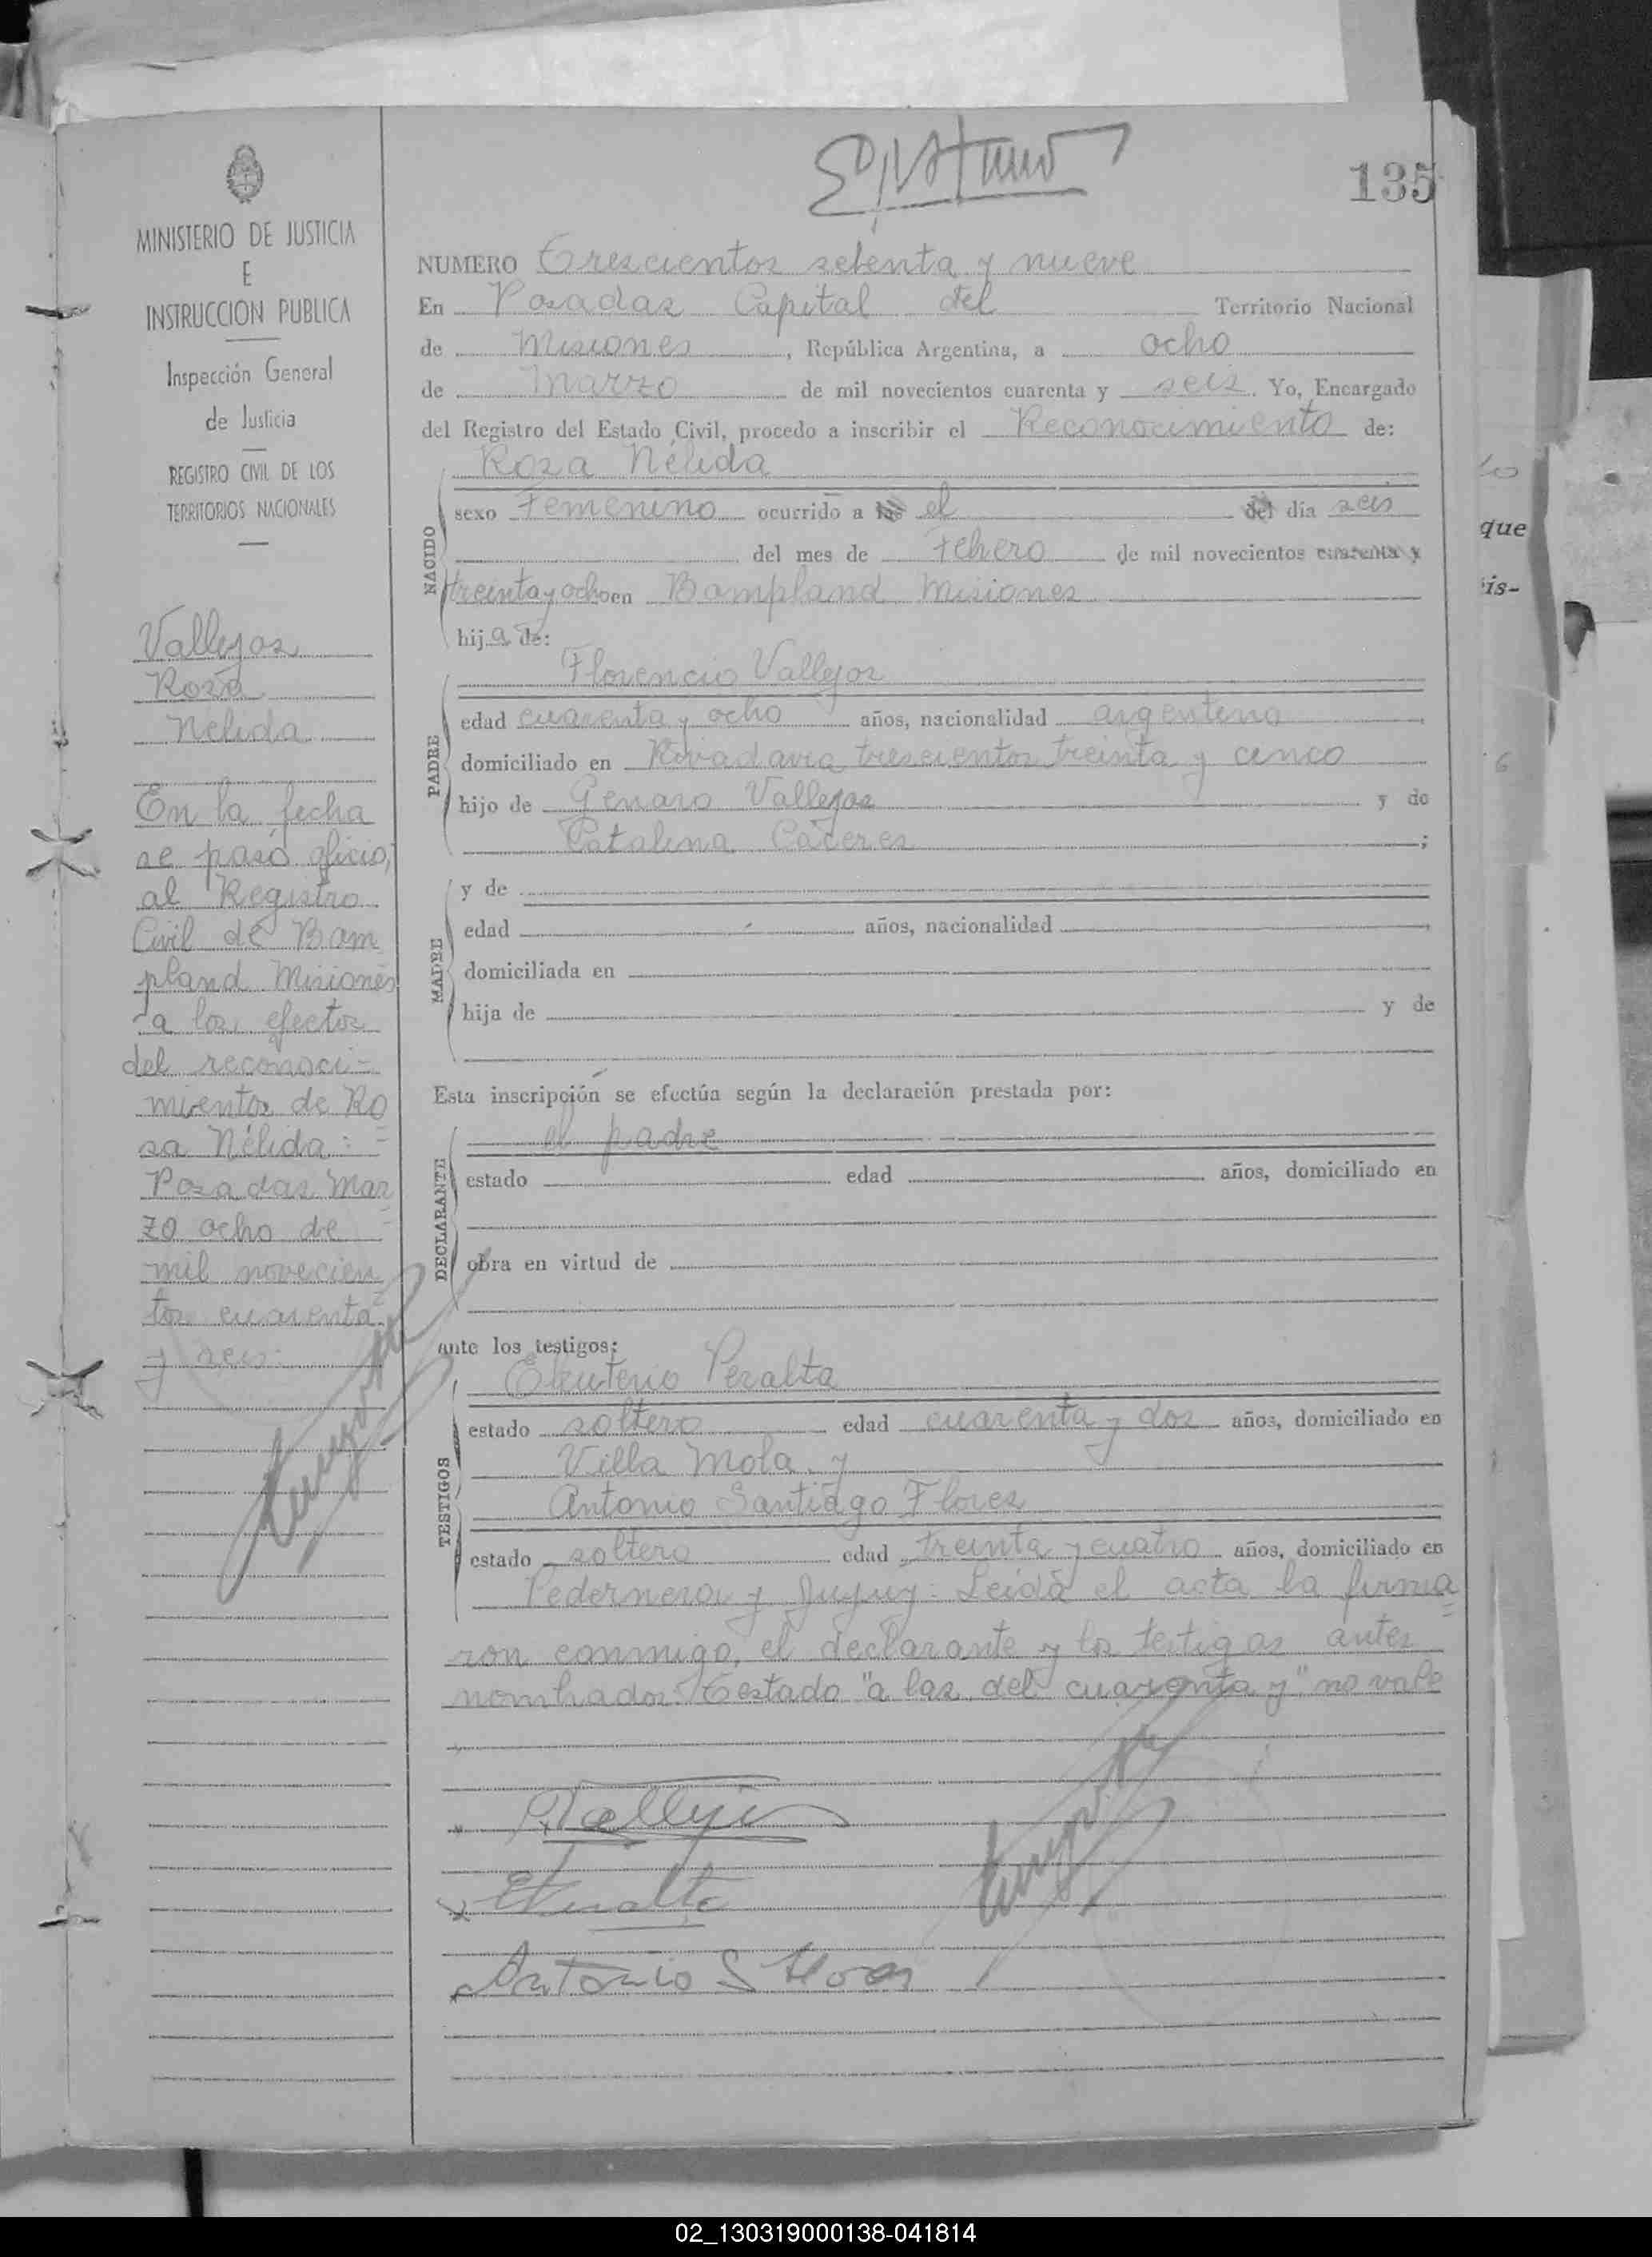 135
MINISTERIO DE JUSTICIA
E
INSTRUCCION PUBLICA
Inspección General
de Justicia
REGISTRO CIVIL DE LOS
TERRITORIOS NACIONALES
Vallejos
Rosa
Nelida
En la fecha
se pasó oficio,
al Registro
Civil de Bam
pland Misiones
a los efectos
del reconoci-
mientos de Ro
sa Nélida:=
Posadas Mar
zo ocho de
mil novecien
tos cuarenta
y seis.
NUMERO Trescientos setenta y nueve
En Posadas Capital del Territorio Nacional
de Misiones, República Argentina, a ocho
de Marzo de mil novecientos cuarenta y seis. Yo, Encargado
del Registro del Estado Civil, procedo a inscribir el Reconocimiento de:
Rosa Nélida
NACIDO
sexo Femenino ocurrido a las el del día seis
del mes de Febrero de mil novecientos cuarenta y
treinta y ocho en Bampland Misiones
hija de:
PADRE
Florencio Vallejos
edad cuarenta y ocho años, nacionalidad argentino
domiciliado en Rivadavia trescientos treinta y cinco
hijo de Genaro Vallejos y de
Catalina Caceres;
MADRE
y de
edad años, nacionalidad
domiciliada en
hija de y de
Esta inscripción se efectúa según la declaración prestada por:
DECLARANTE
el padre
estado edad años, domiciliado en
obra en virtud de
ante los testigos:
TESTIGOS
Eleuterio Peralta
estado soltero edad cuarenta y dos años, domiciliado en
Villa Mola y
Antonio Santiago Flores
estado soltero edad treinta y cuatro años, domiciliado en
Pedernera y Jujuy: Leida el acta la firma=
ron conmigo, el declarante y los testigos antes
nombrados: Testado "a las del cuarenta y" no vale
F Vallejos
E Peralta
Antonio S Flores
que
is-
6
02_130319000138-041814